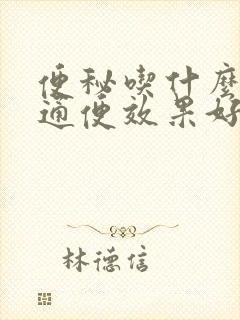 便秘喫什麼
通便效果好
林德信